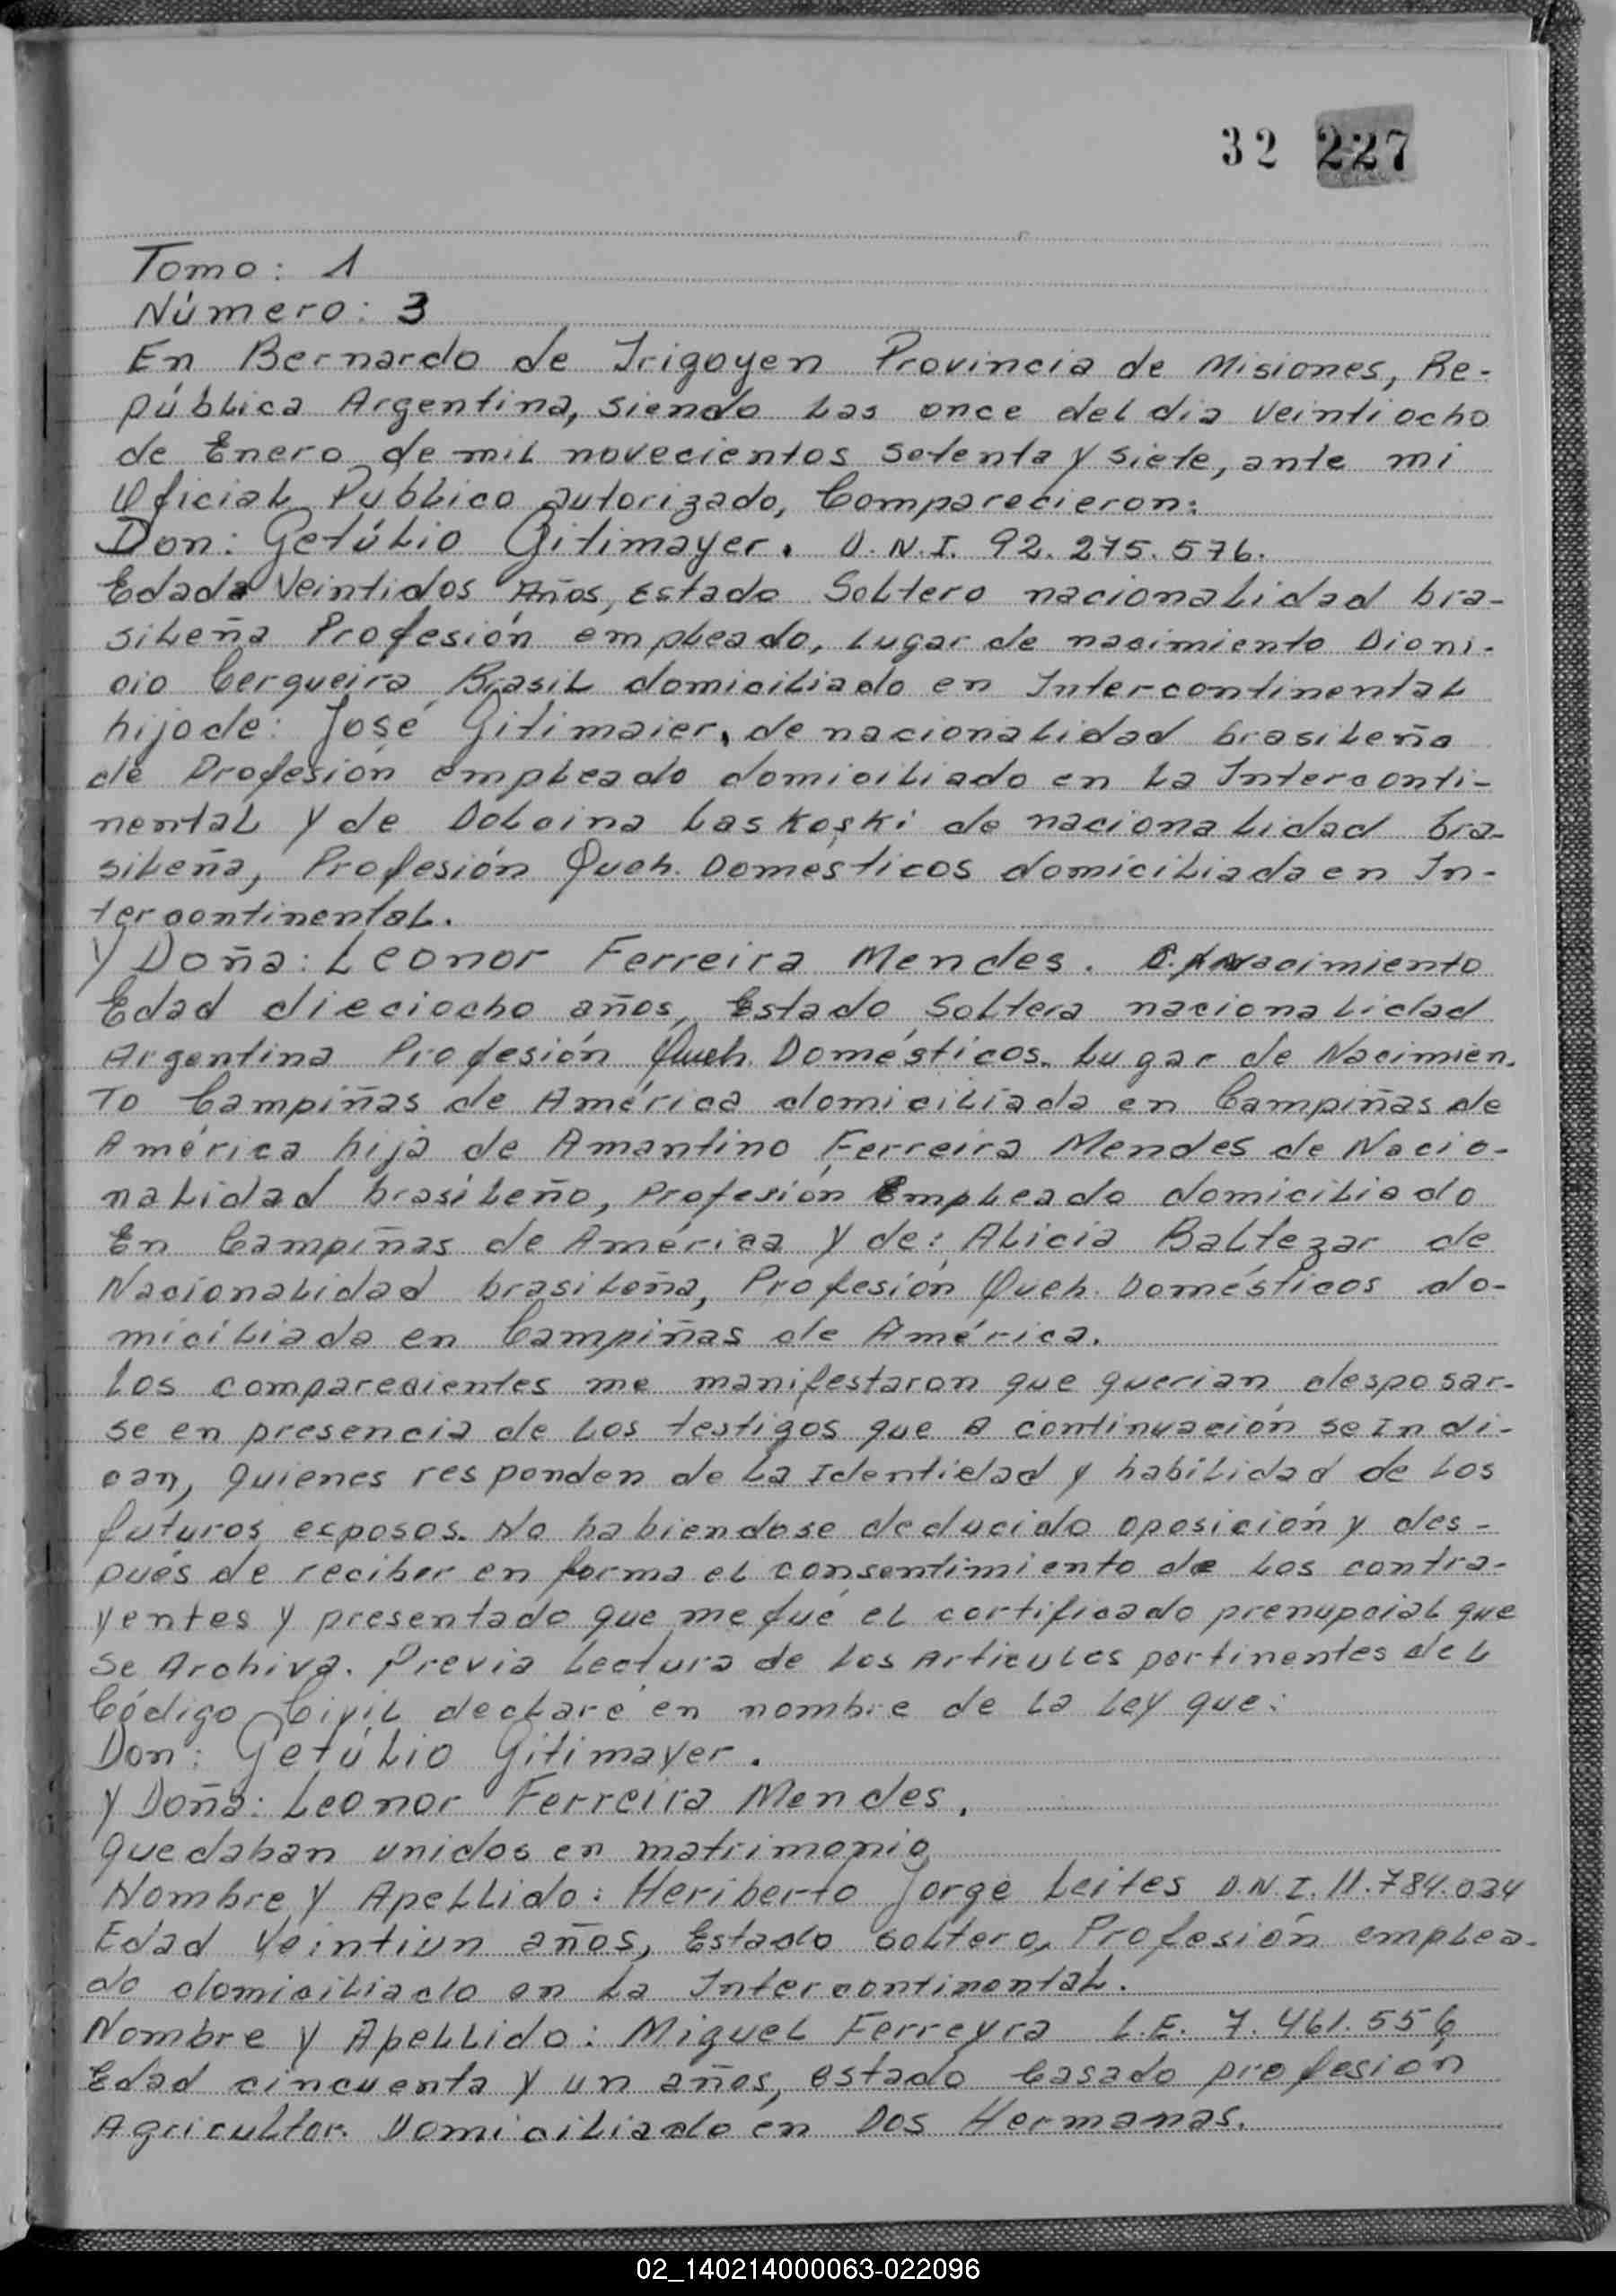 32 227
Tomo: 1
Número: 3
En Bernardo de Irigoyen Provincia de Misiones, Re-
pública Argentina, siendo las once del dia veintiocho
de Enero de mil novecientos setenta y siete, ante mi
Oficial Público autorizado, Comparecieron:
Don: Getúlio Gitimayer. D.N.I. 92.275.576.
Edad Veintidos Años, Estado Soltero nacionalidad bra-
sileña Profesión empleado, lugar de nacimiento Dioni-
cio Cerqueira Brasil domiciliado en Intercontinental
hijo de: José Gitimaier, de nacionalidad brasileña
de Profesión empleado domiciliado en la Interconti-
nental y de Dolcina Laskoski de nacionalidad bra-
sileña, Profesión Queh. Domésticos domiciliada en In-
tercontinental.
Y Doña: Leonor Ferreira Mendes. Nacimiento
Edad dieciocho años, Estado Soltera nacionalidad
Argentina Profesión Queh. Domésticos. Lugar de Nacimien.
To Campiñas de América domiciliada en Campiñas de
América hija de Amantino Ferreira Mendes de Nacio-
nalidad brasileño, Profesión Empleado domiciliado
En Campiñas de América y de: Alicia Baltezar de
Nacionalidad brasileña, Profesión Queh. Domésticos do-
miciliada en Campiñas de América.
Los comparecientes me manifestaron que querian desposar-
se en presencia de los testigos que a continuación se Indi-
can, quienes responden de la Identidad y habilidad de los
futuros esposos. No habiendose deducido oposición y des-
pués de recibir en forma el consentimiento de los contra-
yentes y presentado que me fué el certificado prenupcial que
se Archiva. Previa lectura de los Articulos pertinentes del
Código Civil declaré en nombre de la ley que:
Don: Getúlio Gitimayer.
y Doña: Leonor Ferreira Mendes.
quedaban unidos en matrimonio
Nombre y Apellido: Heriberto Jorge Leites D.N.I. 11.784.034
Edad Veintiun años, Estado soltero, Profesión emplea-
do domiciliado en la Intercontinental.
Nombre y Apellido: Miguel Ferreyra L.E. 7.461.556
Edad cincuenta y un años, estado Casado profesión
Agricultor. Domiciliado en Dos Hermanas.
02_140214000063-022096